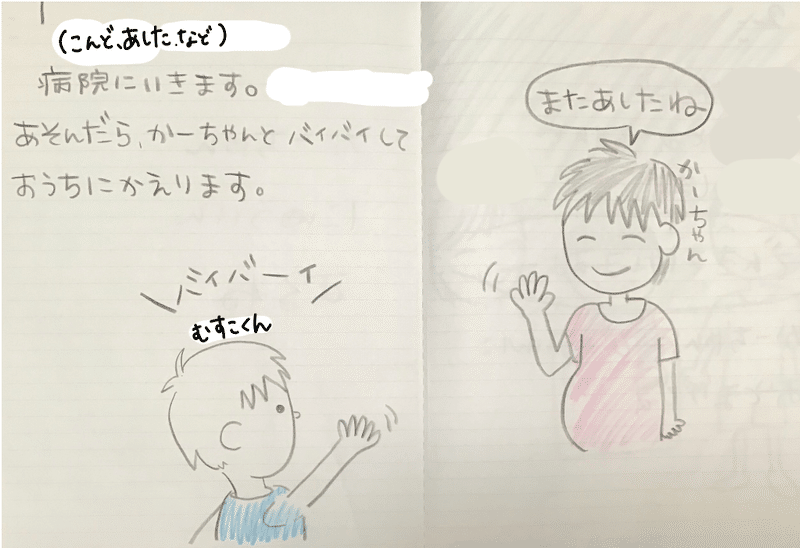 (こんど、あした、など)
病院にいきます。
あそんだら、かーちゃんと バイバイして
おうちにかえります。
\バイバーイ/
むすこくん
またあしたね
かーちゃん